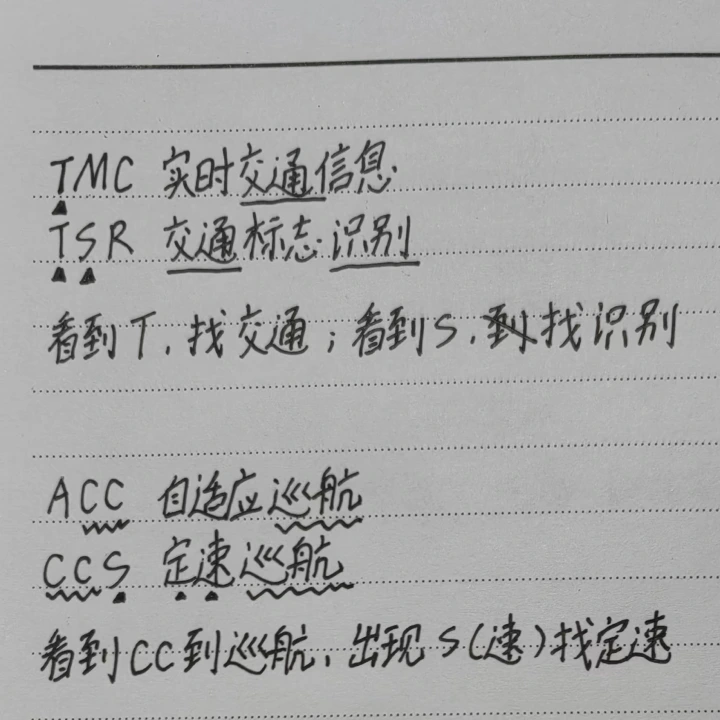 TMC 实时交通信息
TSR 交通标志识别
看到T，找交通；看到S，找识别
ACC 自适应巡航
CCS 定速巡航
看到CC到巡航，出现S（速）找定速